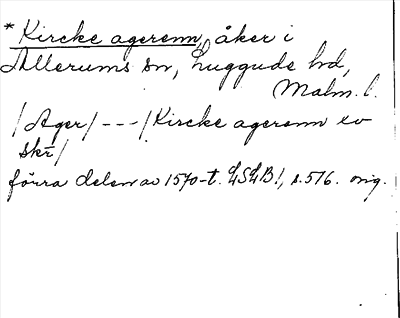 * Kircke agerenn, åker i
Allerums sn, Luggude hd,
Malm. l.
/Ager/ --- /Kircke agerenn xv
skr/
förra delen av 1570-t. LSLB1, s. 516. orig.